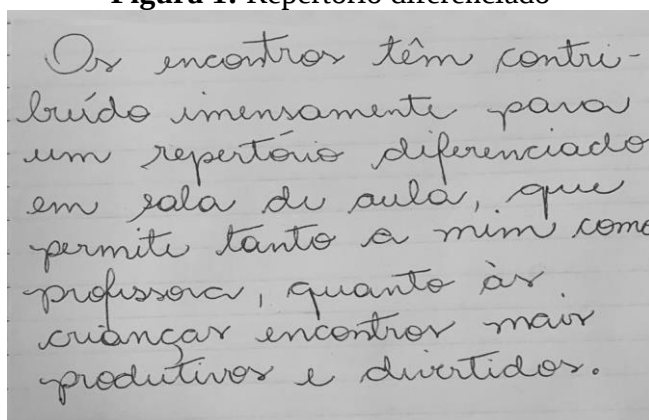 Figura 1: Repertório diferenciado
Os encontros têm contri-
buído imensamente para
um repertório diferenciado
em sala de aula, que
permite tanto a mim como
professora, quanto às
crianças encontros mais
produtivos e divertidos.